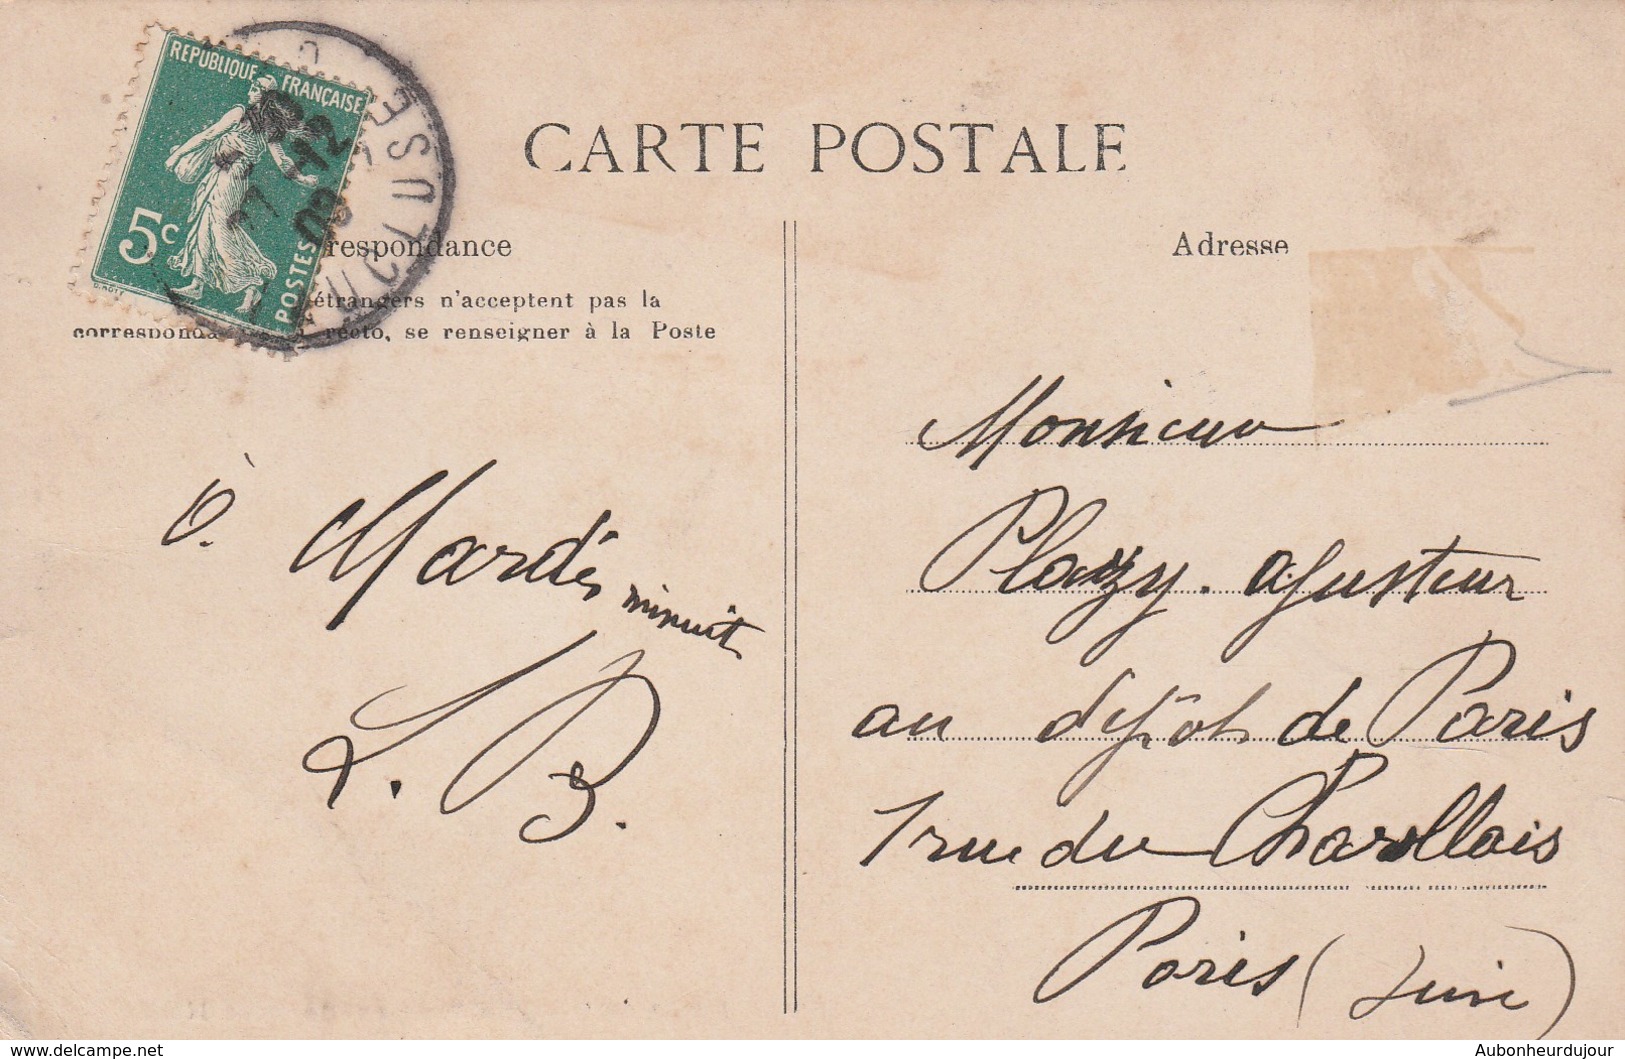 REPUBLIQUE FRANÇAISE
5c
POSTES
5 30
27 -12
09
TOULOUSE
CARTE POSTALE
respondance
étrangers n'acceptent pas la
corresponda recto, se renseigner à la Poste
à Mardi minuit
L. B.
Adresse
Monsieur
Plazy. ajusteur
au dépôt de Paris
1 rue du Charollais
Paris (Seine)
Aubonheurdujour
www.delcampe.net